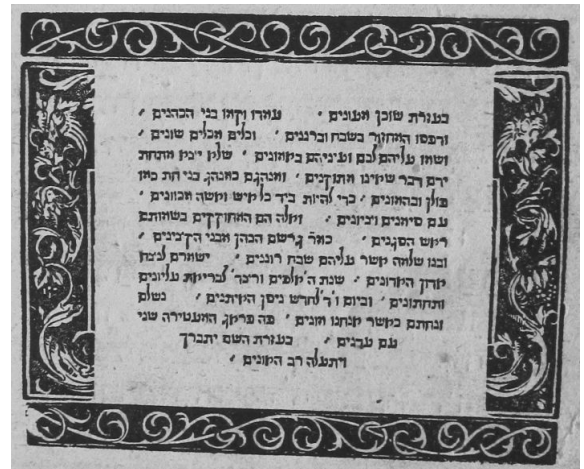 בעזרת שוכן מעונים ׳ עמדו ויקמו בני הכהנים ׳
ודפסו המחזור בשבח וברננים ׳ וכלים מכלים שונים ׳
ושמו עליהם לבם ועיניהם באמונים ׳ שלא יצא מתחת
ידם דבר שאינו מתוקנים ׳ ומנהגם כמנהג בני חת כמו
פולן ׳ כדי להיות ביד כל איש ואשה מכוונים ׳
עם סימנים וציונים ׳ ואלה הם המחוקקים בשמותם
ראש הסגנים ׳ כמר גרשם הכהן מבני הקצינים ׳
ובנו שלמה אשר עליהם שבח רוננים ׳ ישמרם לנצח
אדון האדונים ׳ שנת ה׳אלפים ורצד׳ לבריאת עליונים
ותחתונים ׳ וביום ו׳ד׳לחדש ניסן האיתנים ׳ נשלם
ונחתם כאשר אנחנו חונים ׳ פה פראג המעטירה שני
עם עדנים ׳ בעזרת השם יתברך
ויתעלה רב המונים ׳